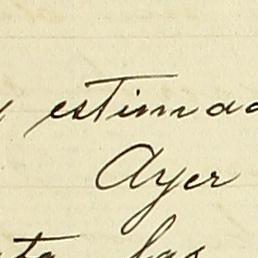 y estimad
Ayer
ta las